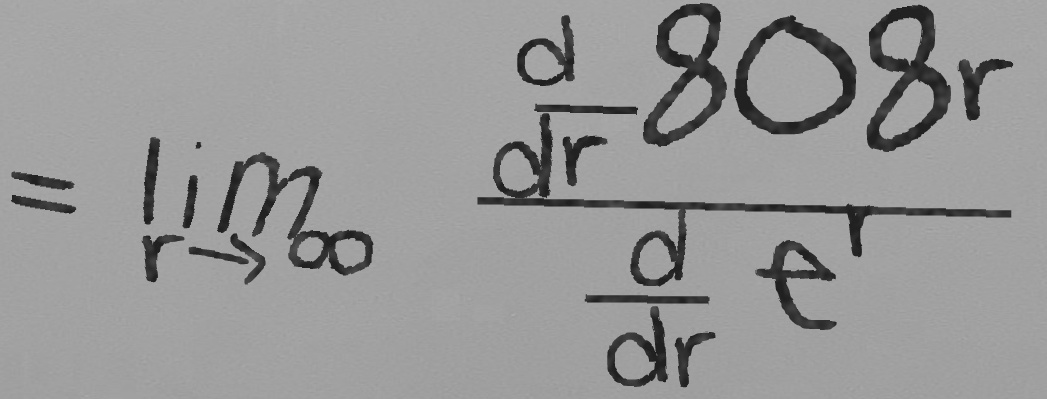 = \lim_{r \to \infty} \frac{\frac{d}{dr} 808r}{\frac{d}{dr} e^r}